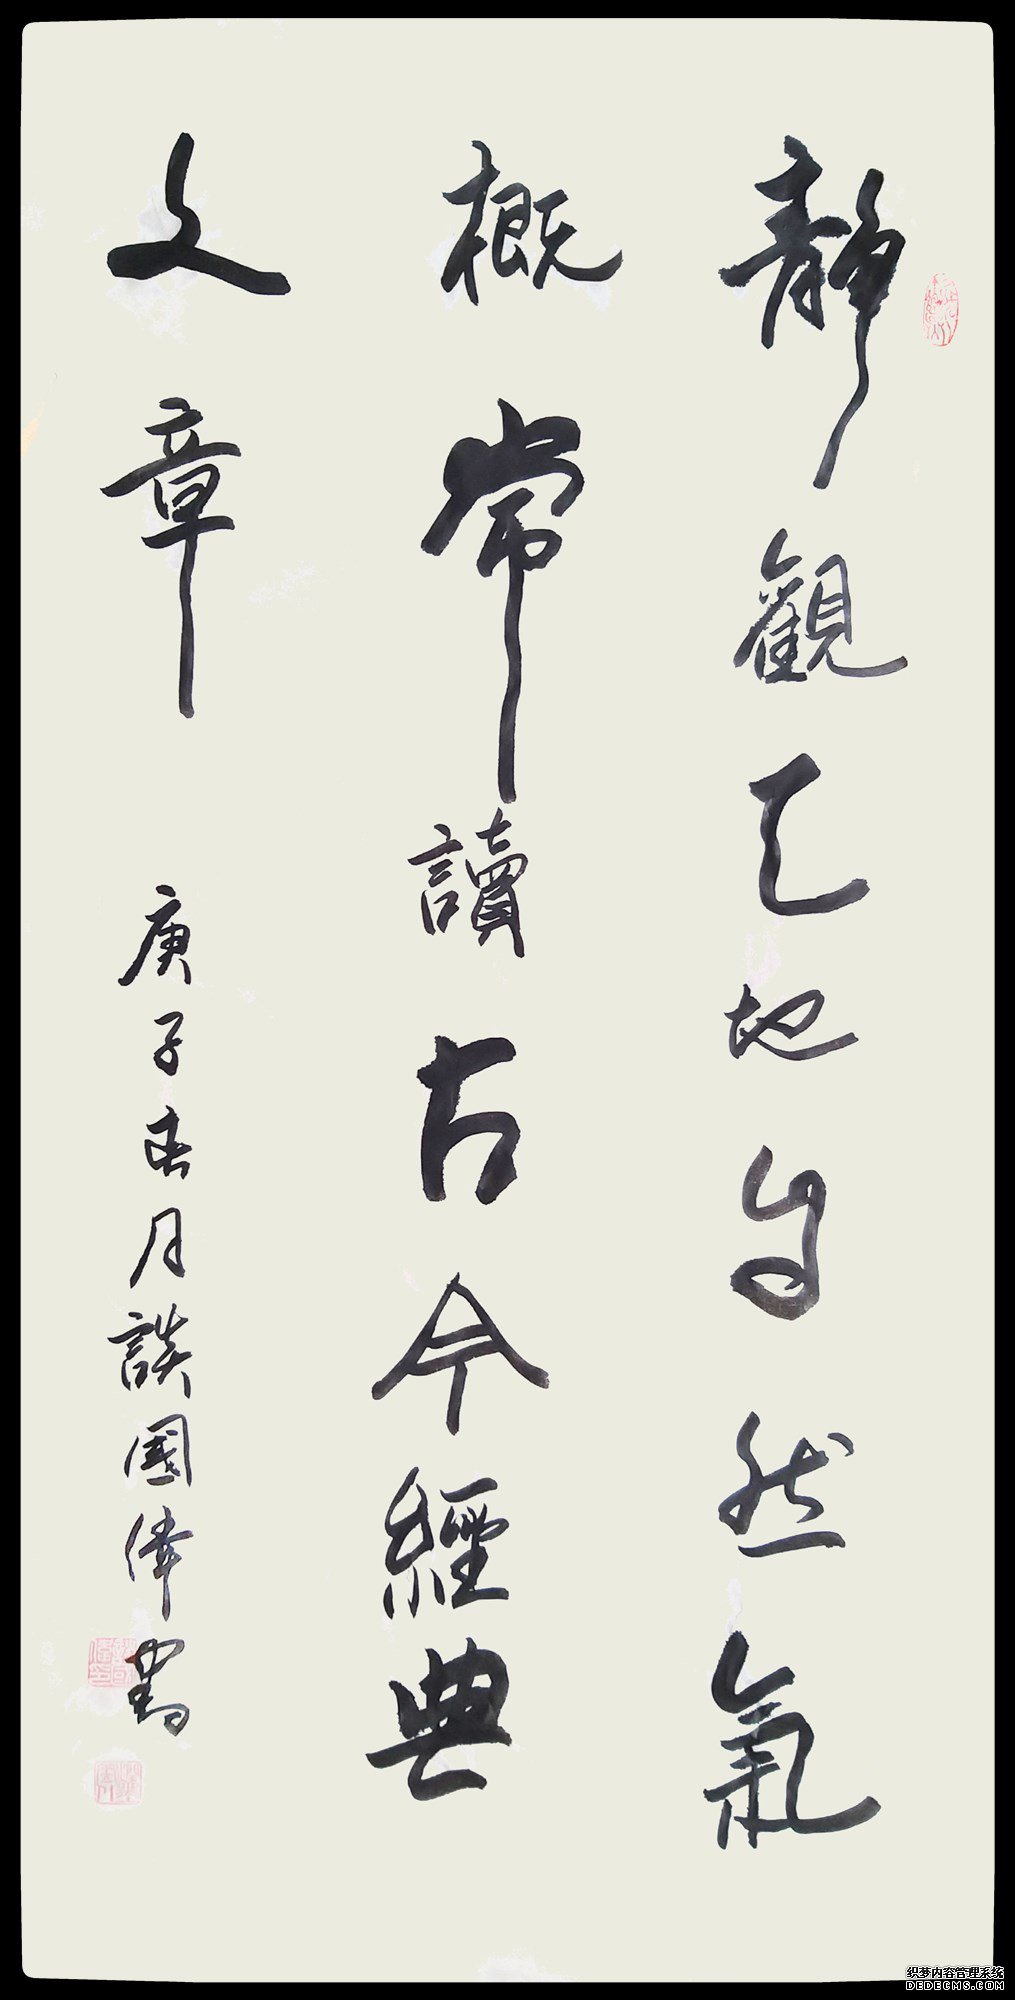 靜觀天地自然氣
概常讀古今經典
文章
庚子春月談國偉書
织梦内容管理系统
DEDECMS.COM